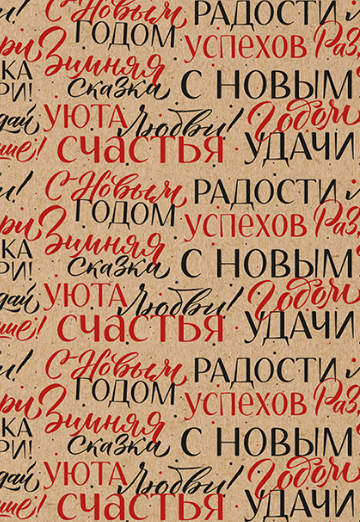 С Новым РАДОСТИ
ГОДОМ УСПЕХОВ
Зимняя
Сказка С НОВЫМ
УЮТА Любви! Годом
счастья УДАЧИ
С Новым РАДОСТИ
ГОДОМ УСПЕХОВ
Зимняя
Сказка С НОВЫМ
УЮТА Любви! Годом
счастья УДАЧИ
С Новым РАДОСТИ
ГОДОМ УСПЕХОВ
Зимняя
Сказка С НОВЫМ
УЮТА Любви! Годом
счастья УДАЧИ